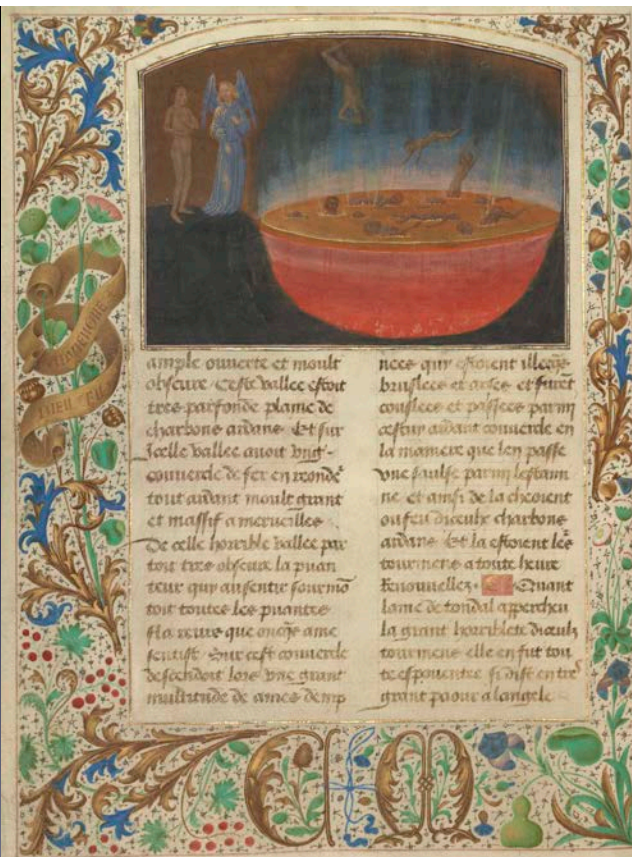 ample ouuerte et moult
obscure Ceste vallee estoit
tres parfonde plaine de
charbons ardans Et sur
Icelle vallee auoit vng
couuercle de fer en rondeˢ
tout ardant moult grant
et massif a merueilles
De celle horrible vallee par
toit tres obscure la puan
teur quy au sentir sourmō
toit toutes les puantes
flaireurs que oncqs ame
sentist Sur cest couuercle
descendoit lors vne grant
multitude de ames dāmp
nees quy estoient illecqs
bruslees et arses et furēt
coulees et passees parmy
cestuy ardant couuercle en
la maniere que len passe
vne saulse parmy lestami
ne et ainsi de la cheoient
ou feu diceulx charbons
ardans Et la estoient les
tourmens a toute heure
Renouuellez Quant
lame de tondal apperchu
la grant horriblete diceulx
tourmens elle en fut tou
te espouentee si dist en tres
grant paour a langele
BIEN EN
AVIENGNE
C M